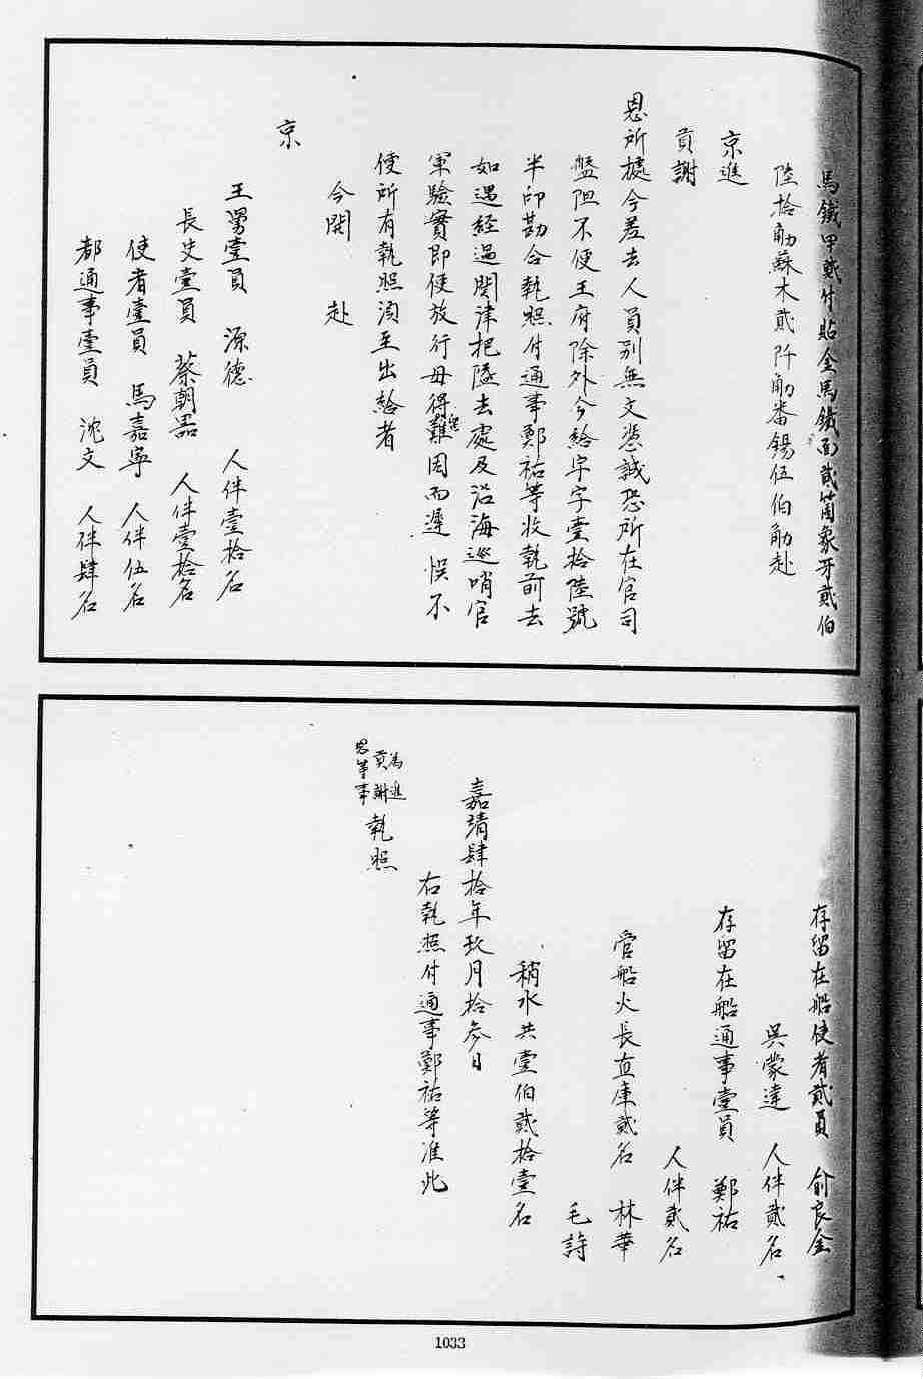 馬鐵甲貳付貼金馬鐵面貳箇象牙貳伯
陸拾觔蘇木貳阡觔番錫伍伯觔赴
京進
貢謝
恩所據今差去人員別無文憑誠恐所在官司
盤阻不便王府除外今給牢字壹拾陸號
半印勘合執照付通事鄭祐等收執前去
如遇經過関津把隘去處及沿海巡哨官
軍驗實即便放行毋得難因而遲悞不
便所有執照須至出給者
今開赴
京
王舅壹員 源德 人伴壹拾名
長史壹員 蔡朝器 人伴壹拾名
使者壹員 馬嘉寧 人伴伍名
都通事壹員 沈文 人伴肆名
存留在船使者貳員 俞良金
吳蒙達 人伴貳名
存留在船通事壹員 鄭祐
人伴貳名
管船火長直庫貳名 林華
毛詩
稍水共壹伯貳拾壹名
嘉靖肆拾年玖月拾參日
右執照付通事鄭祐等准此
為進
貢謝
恩等事
執照
1033